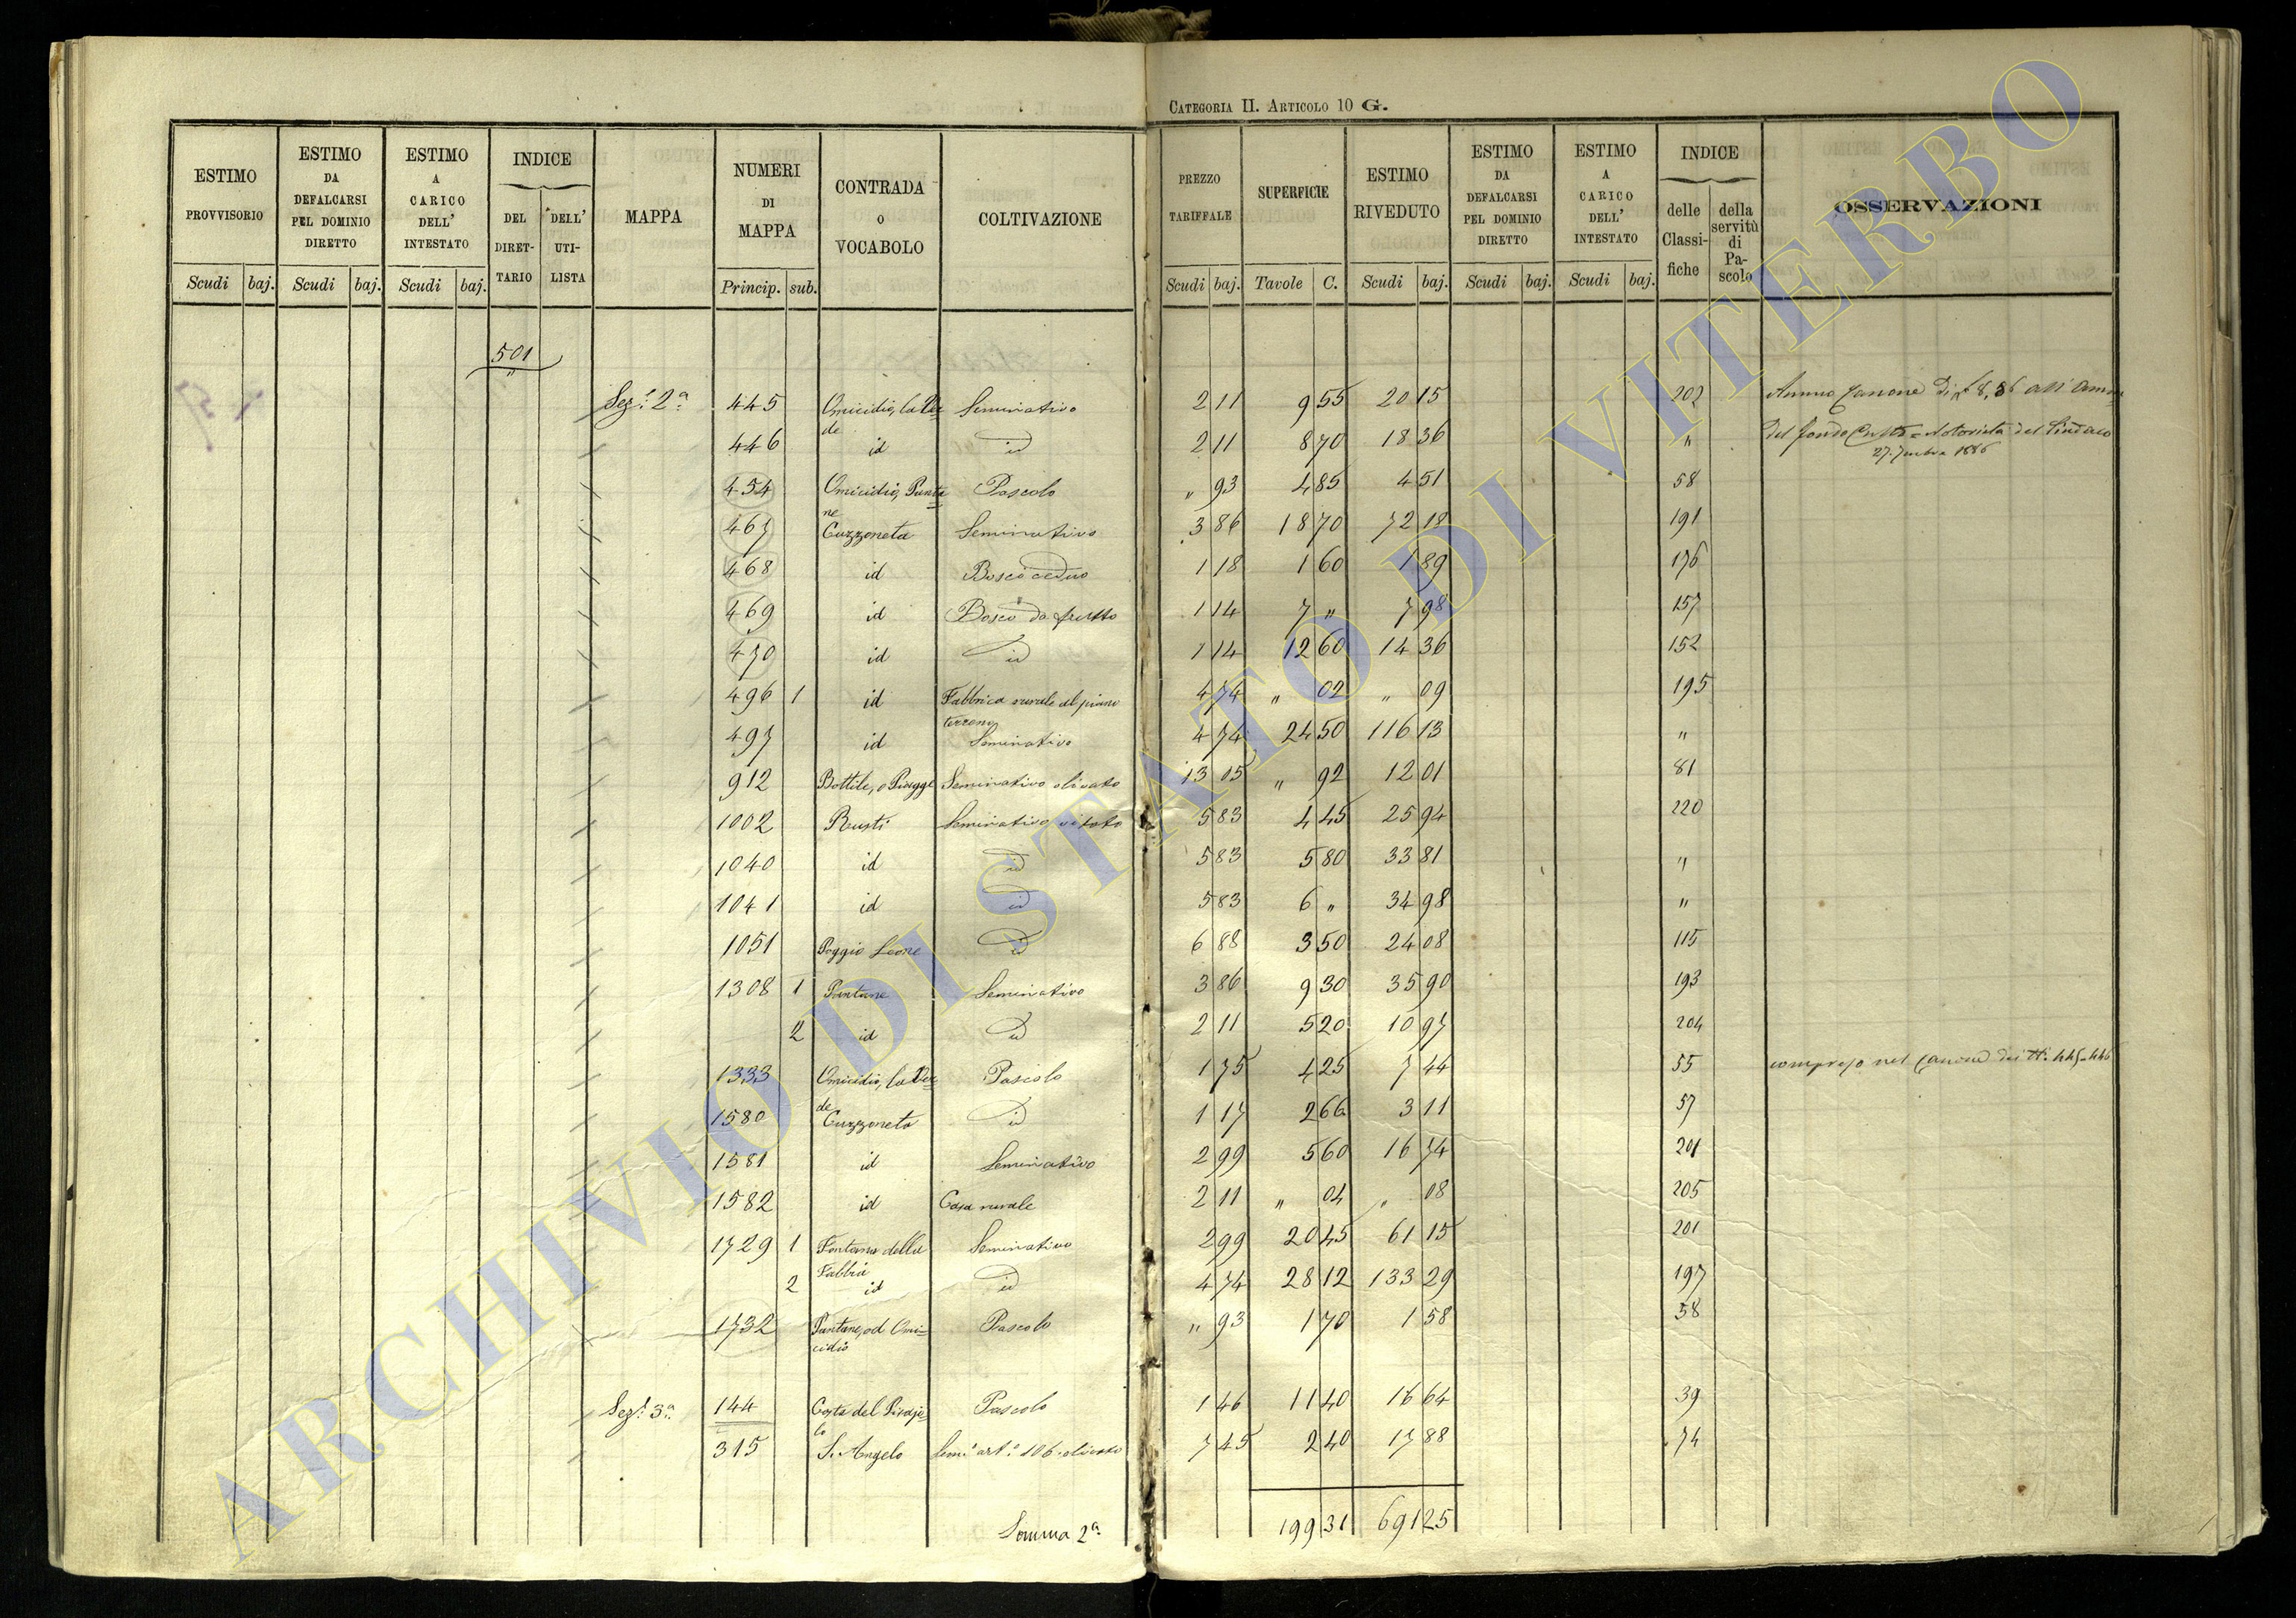 CATEGORIA II. ARTICOLO 10 G.
ESTIMO PROVVISORIO Scudi baj.
ESTIMO DA DEFALCARSI PEL DOMINIO DIRETTO Scudi baj.
ESTIMO A CARICO DELL' INTESTATO Scudi baj.
INDICE DEL DIRETTARIO DELL' UTILISTA
MAPPA
NUMERI DI MAPPA Princip. sub.
CONTRADA O VOCABOLO
COLTIVAZIONE
PREZZO TARIFFALE Scudi baj.
SUPERFICIE Tavole C.
ESTIMO RIVEDUTO Scudi baj.
ESTIMO DA DEFALCARSI PEL DOMINIO DIRETTO Scudi baj.
ESTIMO A CARICO DELL' INTESTATO Scudi baj.
INDICE delle Classifiche della servitù di Pascolo
OSSERVAZIONI
501
"
Sez.e 2a 445 Omicidio, la Ver= Seminativo 2 11 9 55 20 15 202 Annuo Canone di 8,86 all'
de
446 id id 2 11 8 70 18 36 " del fondo Culto = Notorietà del Sindaco
27. 1886
454 Omicidio, Panta= Pascolo " 93 4 85 4 51 58
ne
467 Cuzzoneta Seminativo 3 86 18 70 72 18 191
468 id Bosco ceduo 1 18 1 60 1 89 176
469 id Bosco da frutto 1 14 7 " 7 98 157
470 id id 1 14 12 60 14 36 152
496 1 id Fabbrica rurale al piano 4 74 " 02 " 09 195
terreno
497 id Seminativo 4 74 24 50 116 13 "
912 Bottile, o Piagge Seminativo olivato 13 05 " 92 12 01 81
1002 Rusti Seminativo vitato 5 83 4 45 25 94 220
1040 id id 5 83 5 80 33 81 "
1041 id id 5 83 6 " 34 98 "
1051 Poggio Leone id 6 88 3 50 24 08 115
1308 1 Pantane Seminativo 3 86 9 30 35 90 193
2 id id 2 11 5 20 10 97 204
1333 Omicidio, la Ver= Pascolo 1 75 4 25 7 44 55 compreso nel Canone dei N.i 445-446
de
1580 Cuzzoneta id 1 17 2 66 3 11 57
1581 id Seminativo 2 99 5 60 16 74 201
1582 id Casa rurale 2 11 " 04 " 08 205
1729 1 Fontana della Seminativo 2 99 20 45 61 15 201
Fabbia
2 id id 4 74 28 12 133 29 197
1732 Pantane, od Omi= Pascolo " 93 1 70 1 58 58
cidio
Sez.e 3a 144 Costa del Pascolo 1 46 11 40 16 64 39
lo
315 S. Angelo Sem.o art.o 106 olivato 7 45 2 40 17 88 74
Somma 2a 199 31 691 25
ARCHIVIO DI STATO DI VITERBO